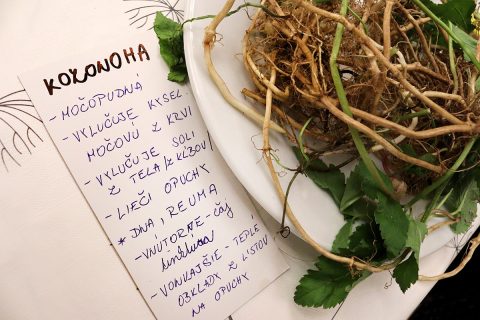 KOZONOHA
- MOČOPUDNÁ
- VYLUČUJE KYSEL.
MOČOVÚ Z KRVI
- VYLUČUJE SOLI
Z TELA/Z KĹBOV/
- LIEČI OPUCHY
* DNA, REUMA
- VNÚTORNE - ČAJ
tinktúra
- VONKAJŠIE - TEPLÉ
OBKLADY Z LISTOV
NA OPUCHY